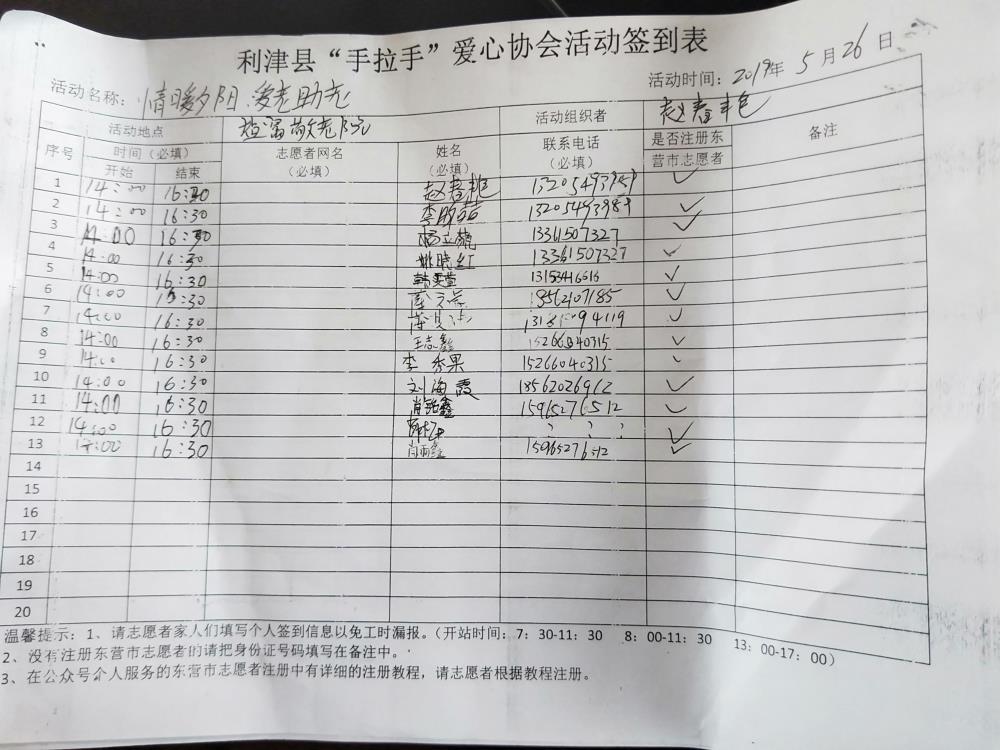 利津县“手拉手”爱心协会活动签到表
活动名称：情暖夕阳、爱老助老 活动时间：2019年 5月26日
活动地点 敬老院 活动组织者 赵春艳
序号 时间（必填） 志愿者网名（必填） 姓名（必填） 联系电话（必填） 是否注册东营市志愿者 备注
开始 结束
1 14:00 16:30 赵春艳 13205493989 ✓
2 14:00 16:30 13205493989 ✓
3 14:00 16:30 13361507327 ✓
4 14:00 16:30 姚晓红 13361507327 ✓
5 14:00 16:30 13153416616 ✓
6 14:00 16:30 18562107185 ✓
7 14:00 16:30 ✓
8 14:00 16:30 王志鑫 15266040315 ✓
9 14:00 16:30 李秀果 15266040315 ✓
10 14:00 16:30 刘海霞 18562026912 ✓
11 14:00 16:30 15965276512 ✓
12 14:00 16:30 ? ? ? ✓
13 14:00 16:30 15965276512 ✓
14
15
16
17
18
19
20
温馨提示：1、请志愿者家人们填写个人签到信息以免工时漏报。（开站时间：7：30-11：30 8：00-11：30 13：00-17：00）
2、没有注册东营市志愿者的请把身份证号码填写在备注中。
3、在公众号个人服务的东营市志愿者注册中有详细的注册教程，请志愿者根据教程注册。